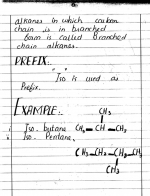 alkanes in which carbon
chain is in branched
form is called Branched
chain alkanes.
PREFIX:.
"Iso is used as
Prefix.
EXAMPLE:.
CH₃
i Iso - butane CH₃ - CH - CH₃
ii Iso - Pentane.
CH₃-CH₂-CH-CH₃
CH₃